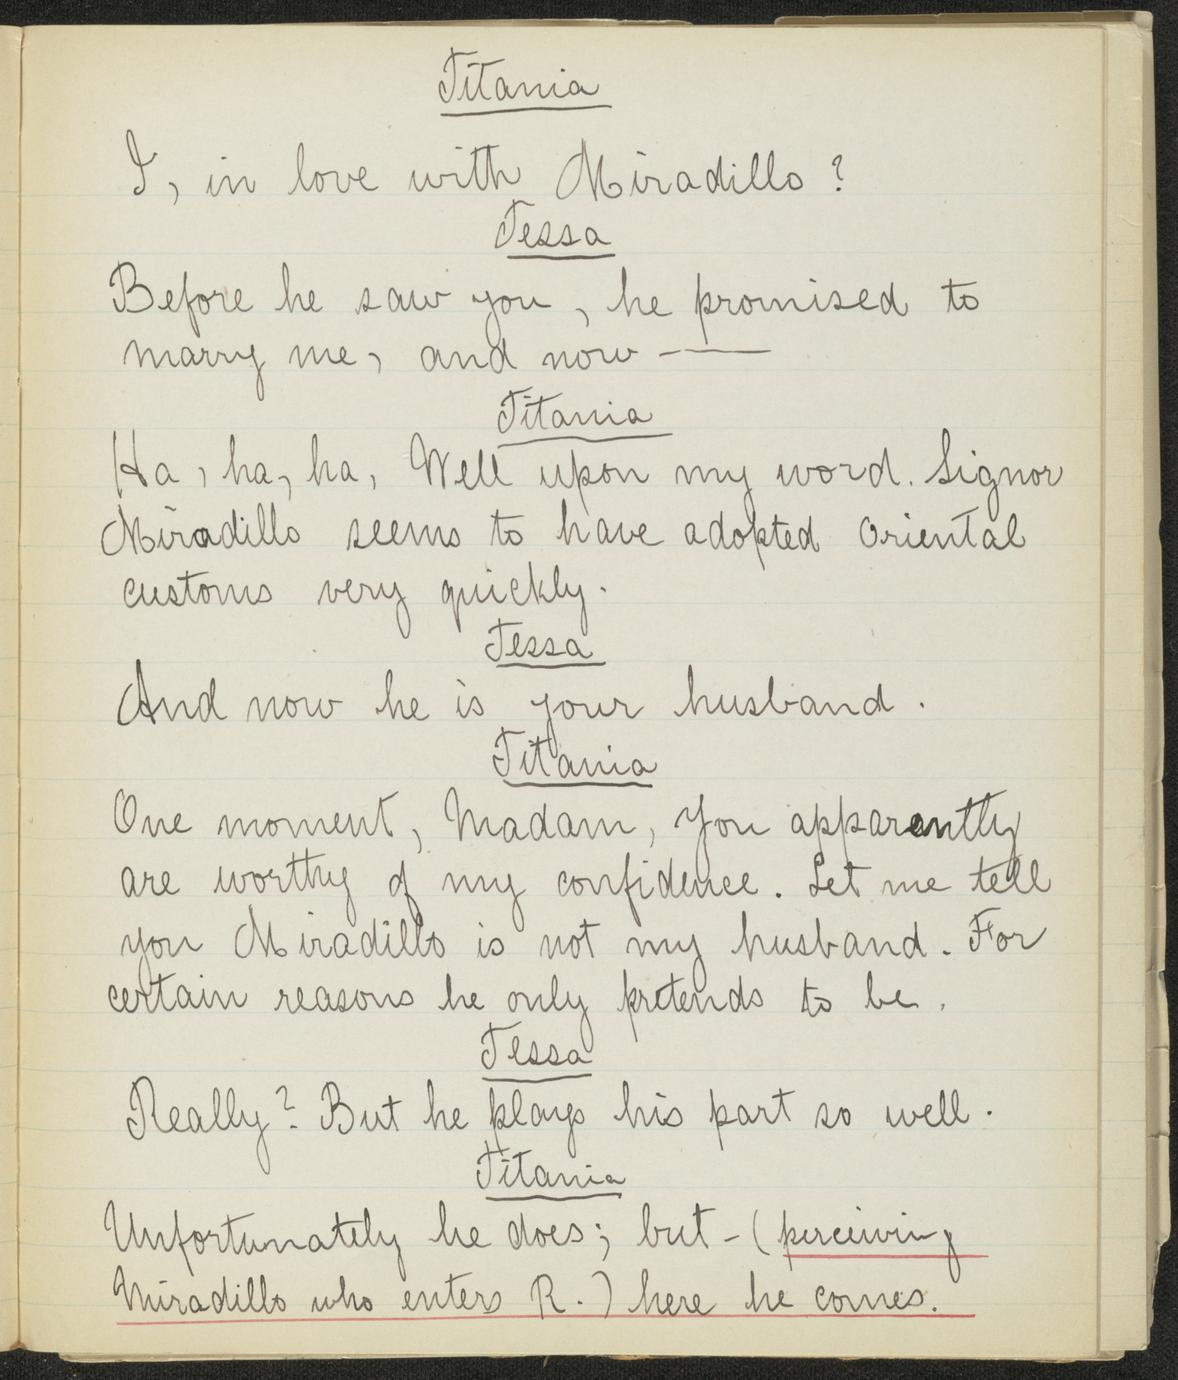 Titania
I, in love with Miradillo?
Tessa
Before he saw you, he promised to
marry me, and now ——
Titania
Ha, ha, ha, Well upon my word. Signor
Miradillo seems to have adopted Oriental
customs very quickly.
Tessa
And now he is your husband.
Titania
One moment, Madam, You apparantly
are worthy of my confidence. Let me tell
you Miradillo is not my husband. For
certain reasons he only pretends to be.
Tessa
Really? But he plays his part so well.
Titania
Unfortunately he does; but - (perceiving
Miradillo who enters R.) here he comes.